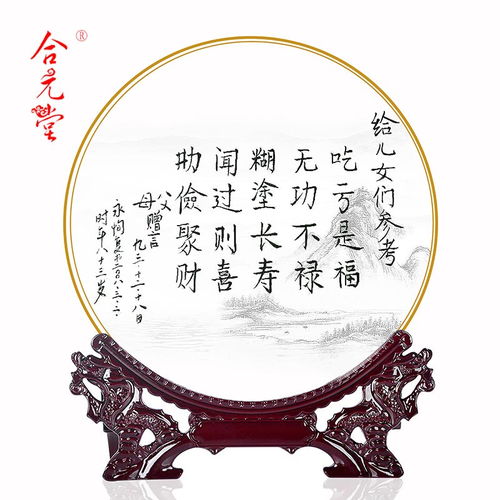 合元堂®
给儿女们参考
吃亏是福
无功不禄
糊塗长寿
闻过则喜
勤儉聚财
父
母赠言
九三·十二·十八日
时年八十三岁